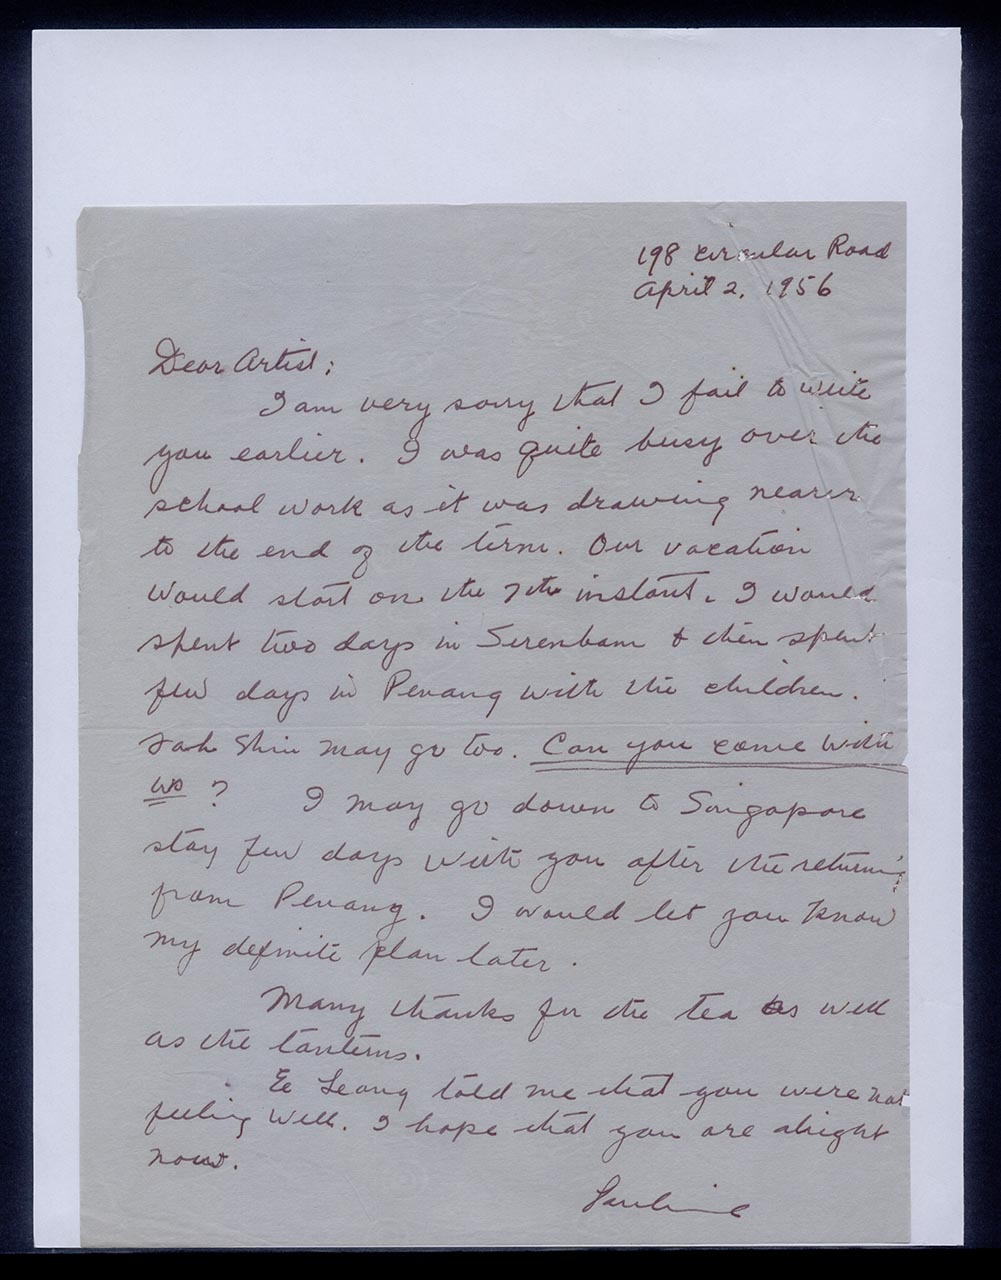 198 Circular Road
April 2, 1956
Dear Artist:
I am very sorry that I fail to write
you earlier. I was quite busy over the
school work as it was drawing nearer
to the end of the term. Our vacation
would start on the 7th instant. I would
spent two days in Serenbam & then spent
few days in Penang with the children.
Shin may go too. Can you come with
us? I may go down to Singapore
stay few days with you after the return
from Penang. I would let you know
my definite plan later.
Many thanks for the tea as well
as the lanterns.
Ee Leong told me that you were not
feeling well. I hope that you are alright
now.
Pauline